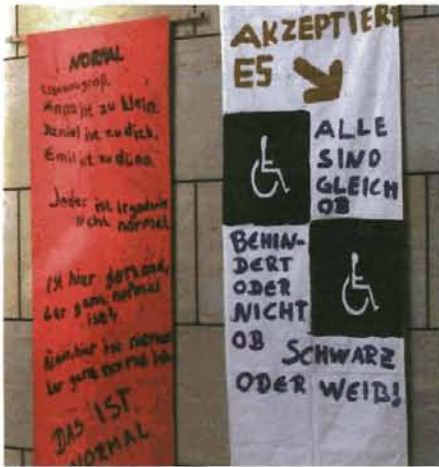 NORMAL
zu groß.
Anna ist zu klein.
Daniel ist zu dick,
Emil ist zu dünn.
Jeder ist irgendwie
nicht normal.
Ist hier jemand,
der ganz normal
ist?
Nein, hier ist niemand
der ganz normal ist.
DAS IST
NORMAL
AKZEPTIERT
ES
ALLE
SIND
GLEICH
OB
BEHIN-
DERT
ODER
NICHT
OB SCHWARZ
ODER WEIß!